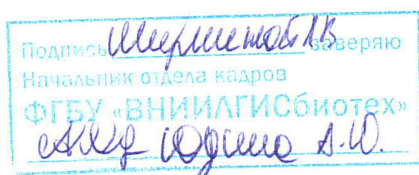 Подпись заверяю
Начальник отдела кадров
ФГБУ «ВНИИЛГИСбиотех»
Юдина А.Ю.